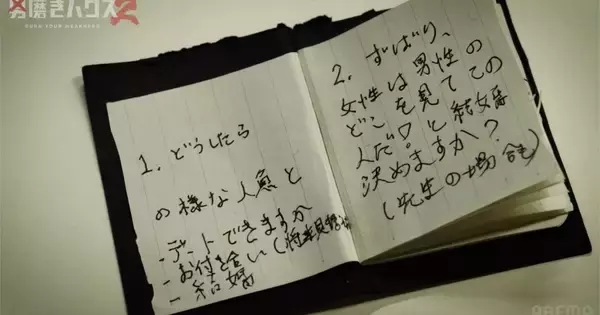 男磨きハウス2
BURN YOUR WEAKNESS
1. どうしたら
の様な人急と
- デートできますか
- お付き合い(将来見据え
- 結婚
2. ずばり、
女性は男性の
どこを見てこの
人だ!と結婚
決めますか?
(先生の場合)
ABEMA